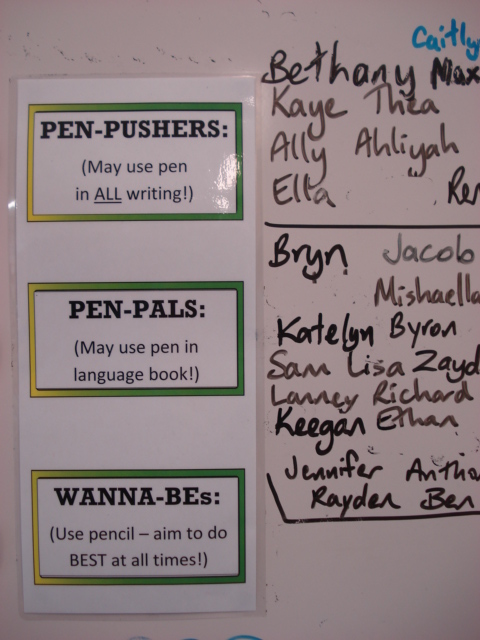 PEN-PUSHERS:
(May use pen
in ALL writing!)
PEN-PALS:
(May use pen in
language book!)
WANNA-BEs:
(Use pencil – aim to do
BEST at all times!)
Bethany Max
Kaye Thea
Ally Ahliyah
Ella
Bryn Jacob
Mishaella
Katelyn Byron
Sam Lisa Zayd
Lanney Richard
Keegan Ethan
Jennifer
Rayden Ben